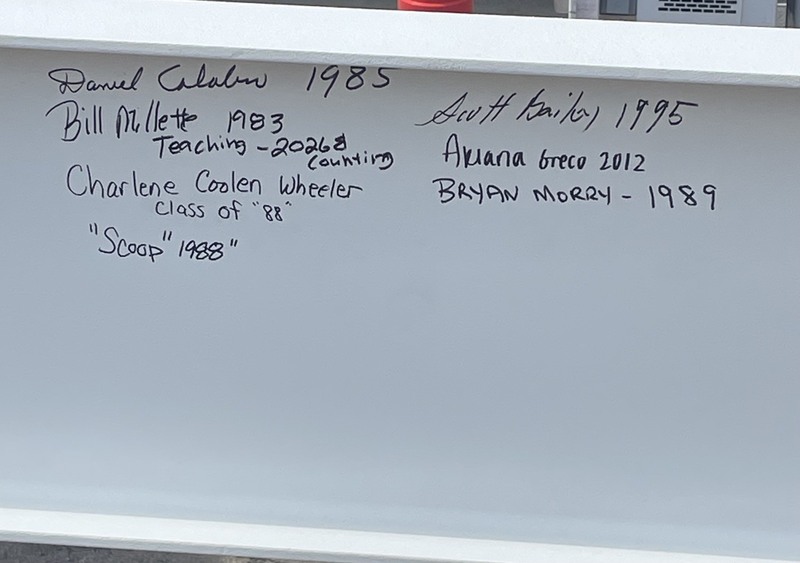 Daniel 1985
Bill Millette 1983
Teaching - 2026 &
Counting
Charlene Coolen Wheeler
Class of "88"
"Scoop" 1988"
Scott Bailey 1995
Ariana Greco 2012
BRYAN MORRY - 1989